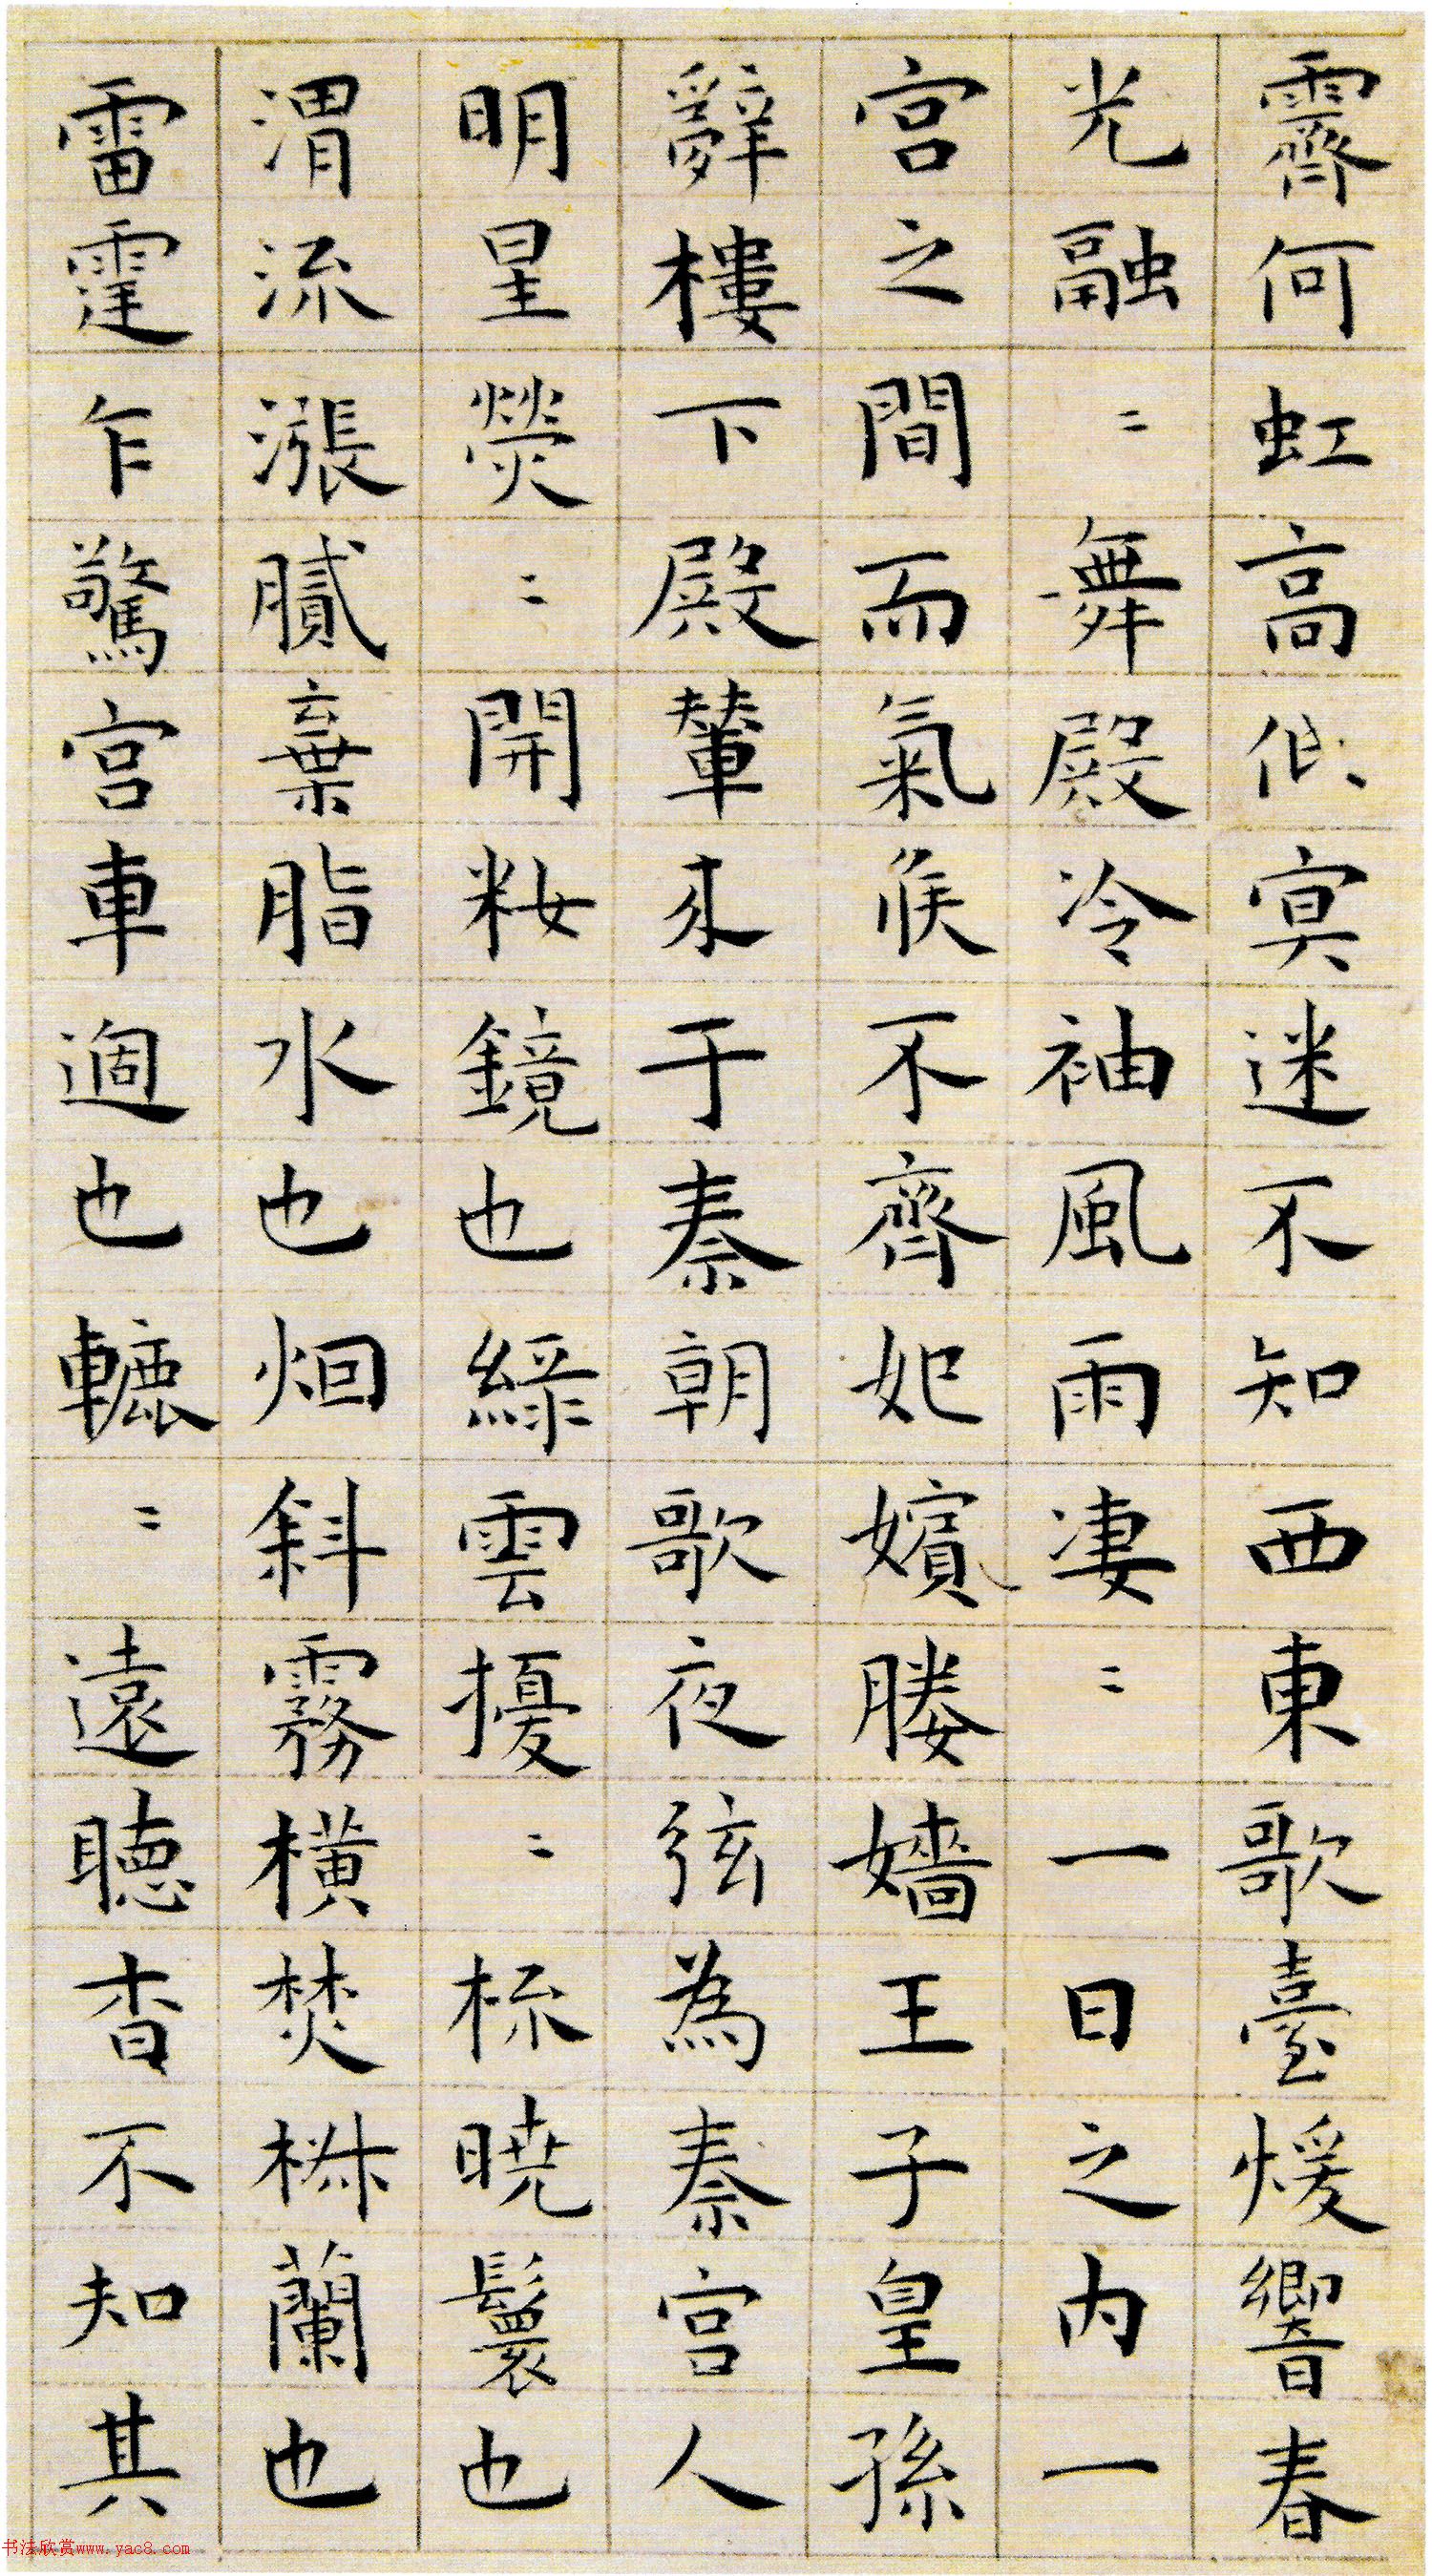 霽何虹高低冥迷不知西東歌臺煖響春
光融〻舞殿冷袖風雨凄〻一日之内一
宫之間而氣候不齊妃嬪媵嬙王子皇孫
辭樓下殿輦来于秦朝歌夜弦為秦宫人
明星熒〻開粧鏡也綠雲擾〻梳曉鬟也
渭流漲膩棄脂水也烟斜霧橫焚椒蘭也
雷霆乍驚宫車過也轆〻遠聽杳不知其
书法欣赏www.yac8.com